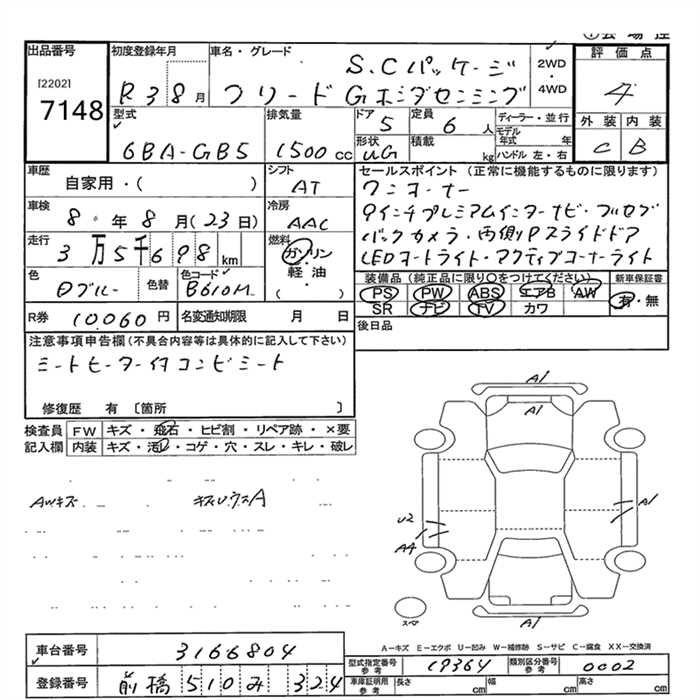 出品番号
[2202]
7148
初度登録年月
R 3 8 月
車名・グレード
S.Cパッケージ
フリード Gホンダセンシング
2WD
・
4WD
評価点
4
外装 内装
C B
型式
6BA-GB5
排気量
1500 cc
ドア
5
定員
6 人
形状
UG
積載
kg
ディーラー・並行
モデル
年式 年
ハンドル 左・右
車歴
自家用・( )
シフト
AT
車検
8 年 8 月(23日)
冷房
AAC
走行
3万5千698 km
燃料
ガソリン
軽油
( )
色
Dブルー
色替
色コード
B610M
R券
10.060 円
名変通知期限 月 日
セールスポイント (正常に機能するものに限ります)
ワンオーナー
9インチプレミアムインターナビ・フルセグ
バックカメラ・両側Pスライドドア
LEDオートライト・アクティブコーナーライト
装備品(純正品に限り○をつけてください)
新車保証書
PS PW ABS エアB AW
SR ナビ TV カワ
有・無
後日品
注意事項申告欄(不具合内容等は具体的に記入して下さい)
シートヒーター付 コンビシート
修復歴 有 〔箇所 〕
検査員
記入欄
FW キズ・飛石・ヒビ割・リペア跡・×要
内装 キズ・汚レ・コゲ・穴・スレ・キレ・破レ
AWキズ
A1
A1
U2
A4
A1
A1
スペア
A-キズ E-エクボ U-凹み W-補修跡 S-サビ C-腐食 XX-交換済
車台番号
3166804
登録番号
前橋 510 み 324
型式指定番号
参考
19364
類別区分番号
参考
0002
車庫証明用
参考
長さ cm
幅 cm
高さ cm